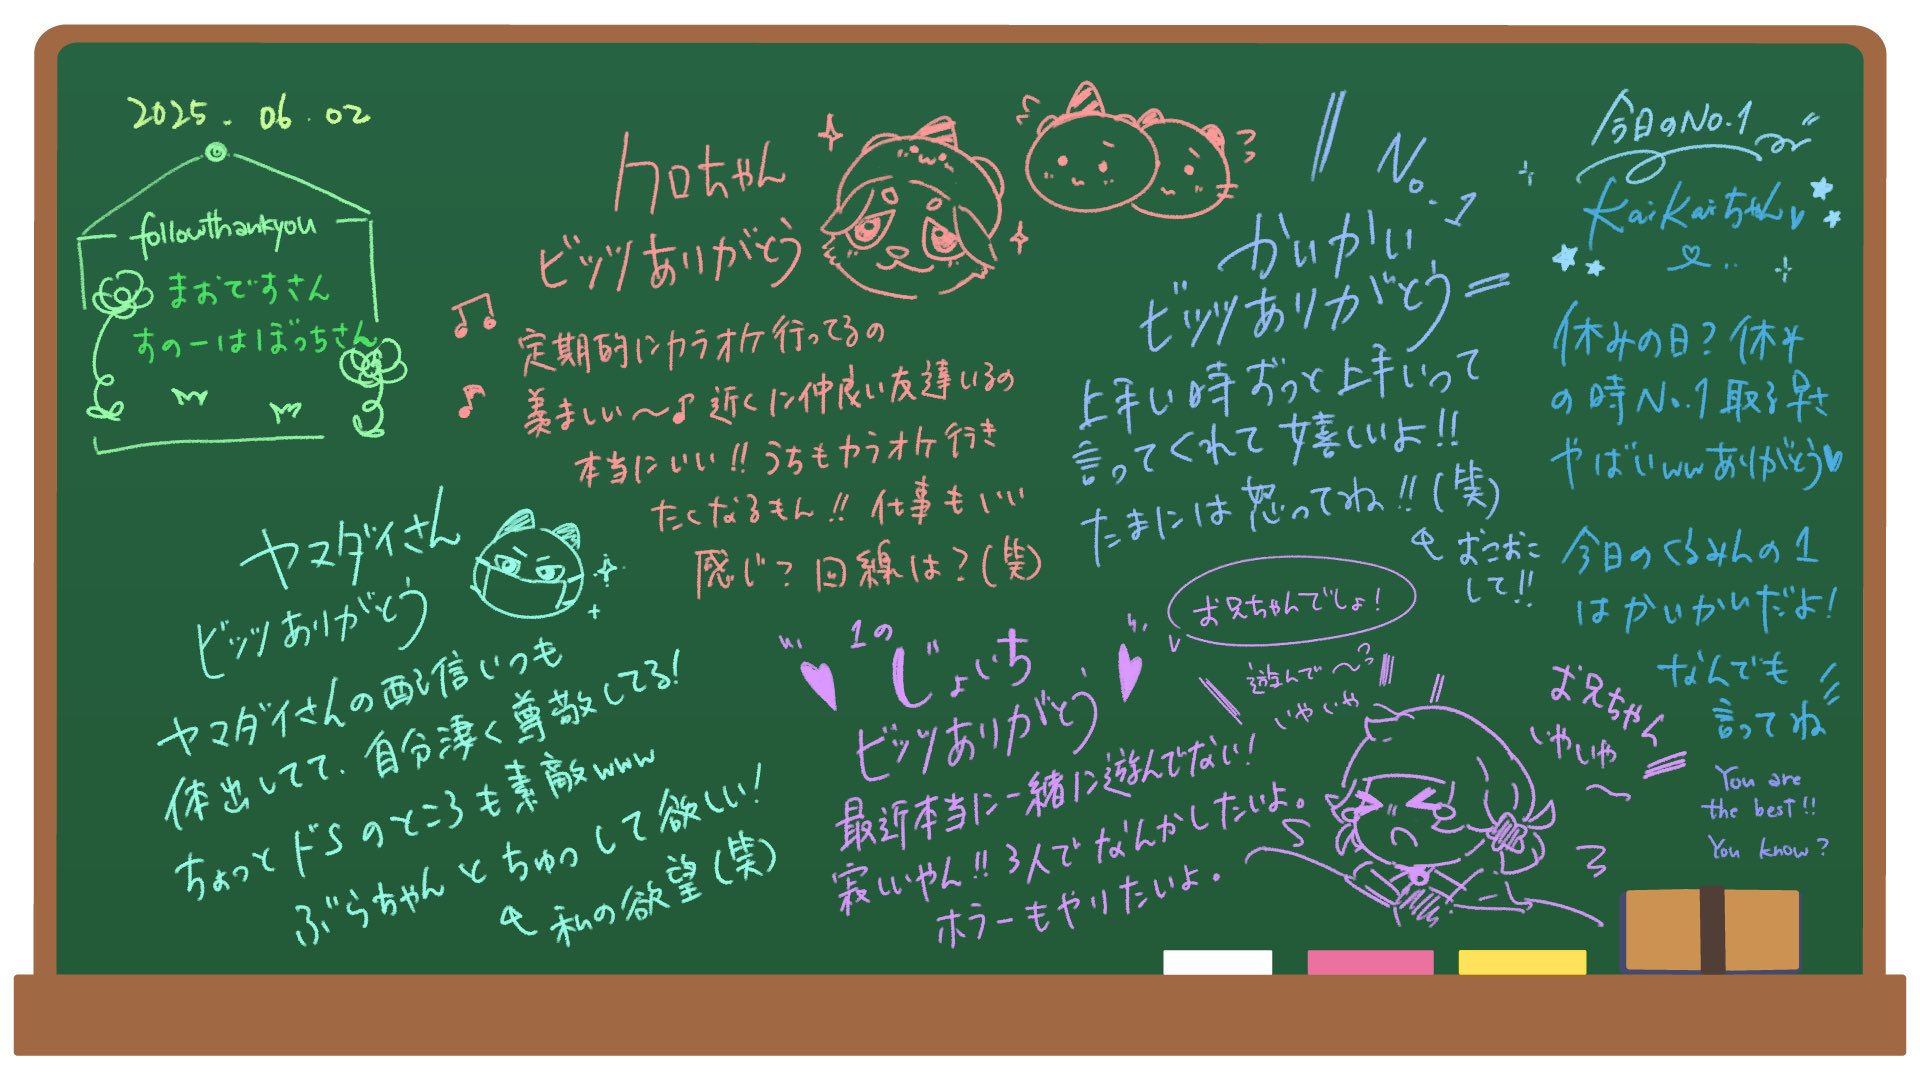 2025.06.02
followthankyou
まおですさん
すのーはぼっちさん
クロちゃん
ビッツありがとう
定期的にカラオケ行ってるの
羨ましい〜♪近くに仲良い友達いるの
本当にいい!!うちもカラオケ行き
たくなるもん!!仕事もいい
感じ?回線は?(笑)
No.1
かいかい
ビッツありがとう
上手い時ずっと上手いって
言ってくれて嬉しいよ!!
たまには怒ってね!!(笑)
おこおこ
して!!
今日のNo.1
KaiKaiちゃん
休みの日?休み
の時No.1取る早さ
やばいwwありがとう
今日のくるみんの1
はかいかいだよ!
なんでも
言ってね
You are
the best!!
You know?
ヤマダイさん
ビッツありがとう
ヤマダイさんの配信いつも
体出してて、自分凄く尊敬してる!
ちょっとドSのところも素敵www
ぶらちゃんとちゅっして欲しい!
私の欲望(笑)
1の
じょいち
ビッツありがとう
最近本当に一緒に遊んでない!
寂しいやん!!3人でなんかしたいよ。
ホラーもやりたいよ。
お兄ちゃんでしょ!
遊んで〜
いやいや
お兄ちゃん
いやいや
〜